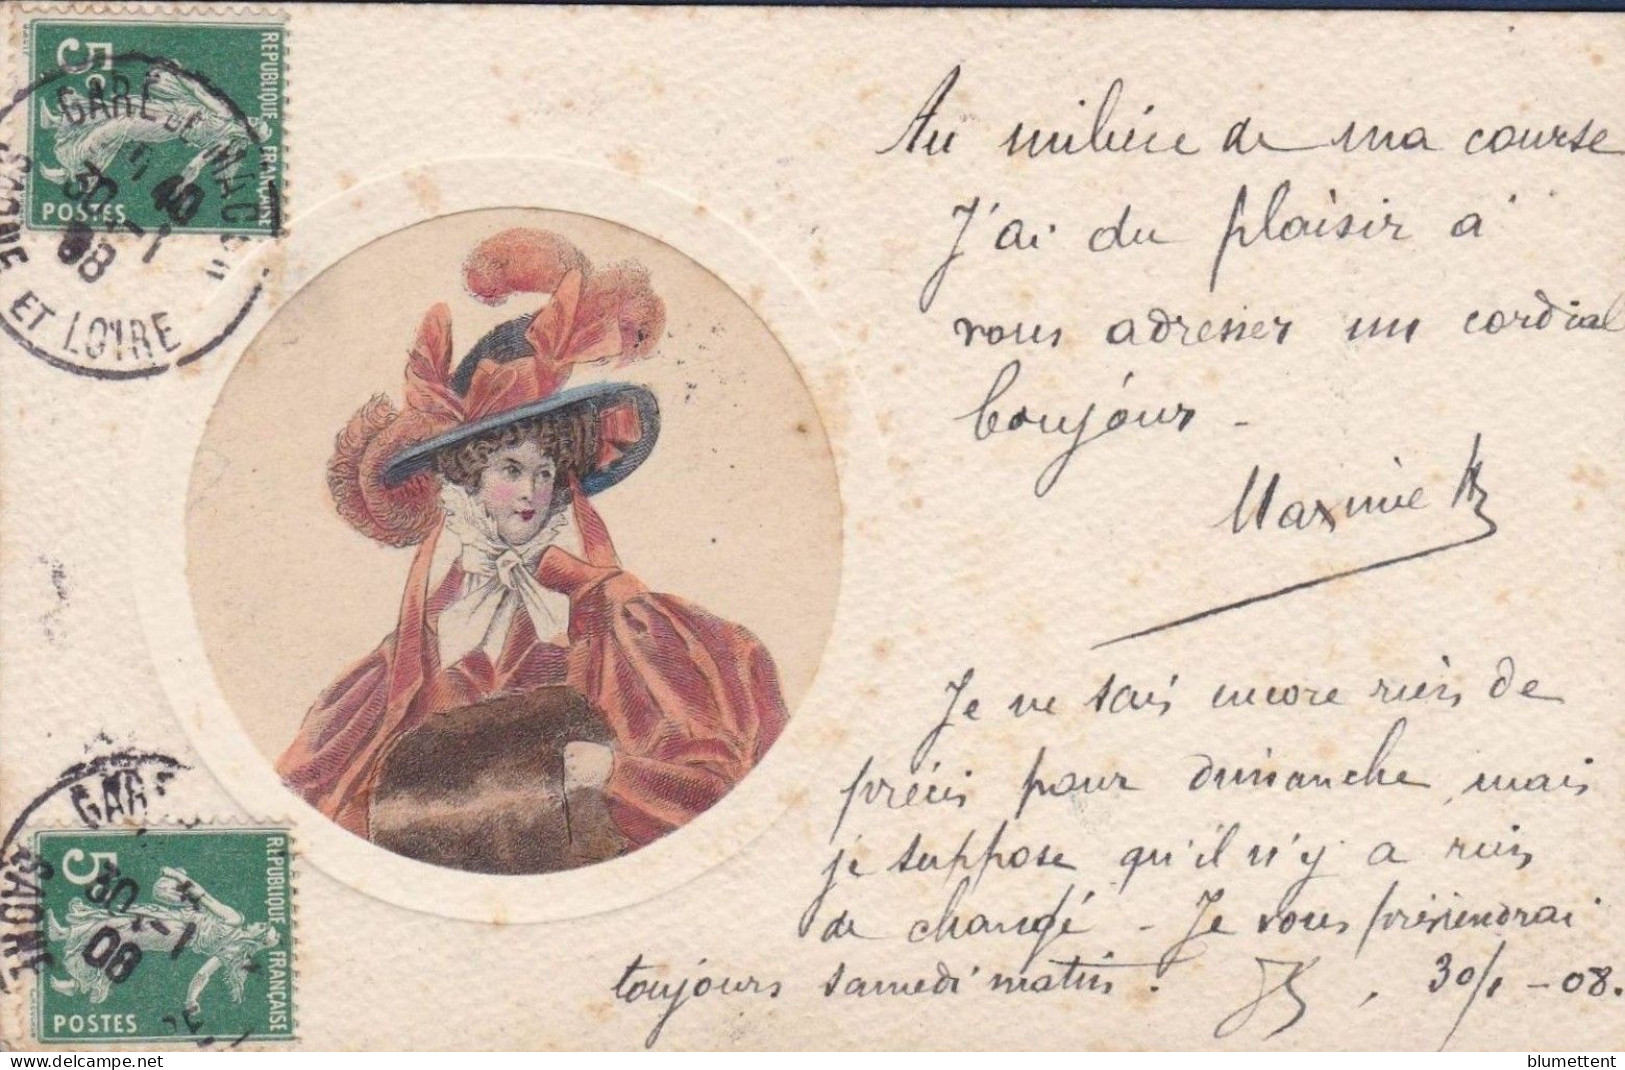 5c
REPUBLIQUE FRANÇAISE
POSTES
GARE DE MACON
SAONE ET LOIRE
5 40
30 - 1
08
Au milieu de ma course
J'ai du plaisir à
vous adresser un cordial
bonjour -
Maxime
Je ne sais encore rien de
précis pour dimanche, mais
je suppose qu'il n'y a rien
de changé - Je vous préviendrai
toujours samedi matin. , 30/1 - 08.
GARE
SAONE
30 - 1
08
5c
REPUBLIQUE FRANÇAISE
POSTES
blumettent